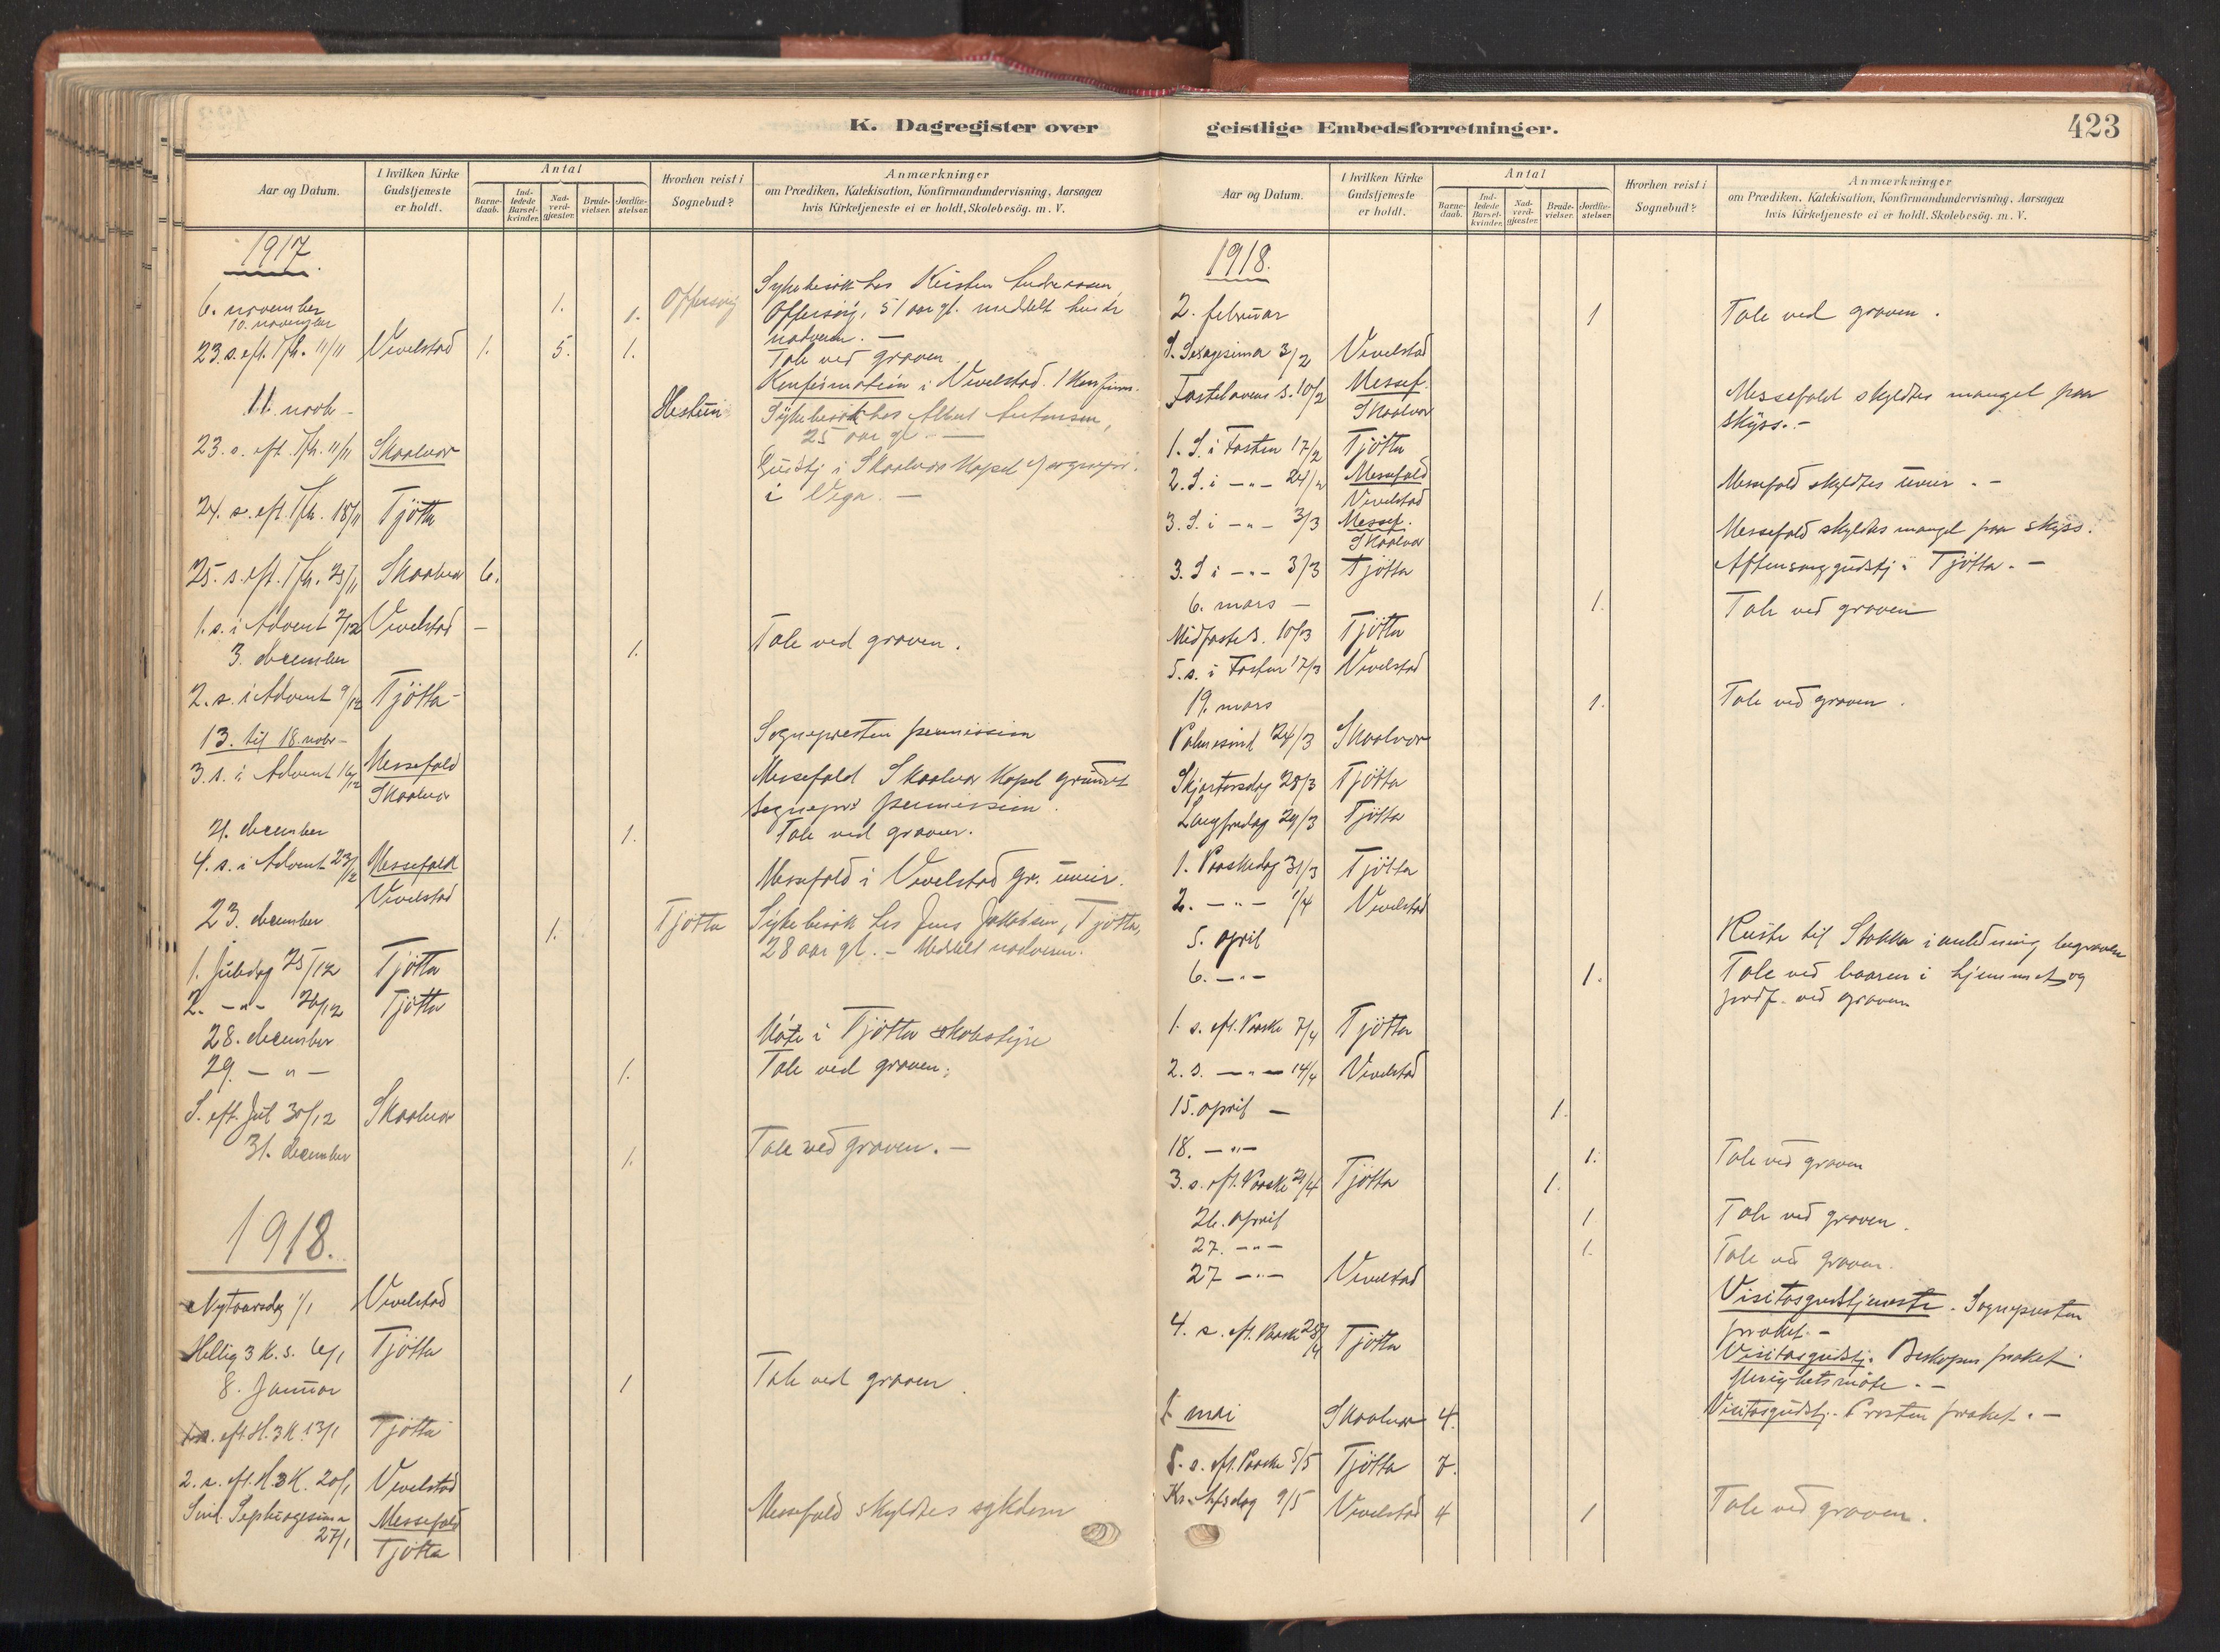 K. Dagregister over
Aar og Datum.
I hvilken Kirke Gudstjeneste er holdt.
Antal
Barne-daab.
Ind-ledede Barsel-kvinder.
Nad-verd-gjæster.
Brude-vielser.
Jordfæ-stelser.
Hvorhen reist i Sognebud?
Anmærkninger
om Prædiken, Katekisation, Konfirmandundervisning, Aarsagen
hvis Kirketjeneste ei er holdt, Skolebesög. m. V.
1917.
6. november 1. Offersøy Sykebesøk hos
10. november 1. Offersøy, 51 aar gl. meddelt
nadverden. -
23. s. eft. Tr. 11/11 Vevelstad 1. 5. 1. Tale ved graven
Konfirmation i Vevelstad. 1 Konfirm.
11. novb - Hestun Sykebesøk hos Albert
25 aar gl. -
23. s. eft. Tr. 11/11 Skaalvær Gudstj i Skaalvær Kapel
i Vega. -
24. s. eft. Tr. 18/11 Tjötta
25. s. eft. Tr. 25/11 Skaalvær 6.
1. s. i Advent 2/12 Vevelstad -
3. december 1. Tale ved graven.
2. s. i Advent 9/12 Tjötta -
13. til 18. novbr - Sognepresten permission
3. s. i Advent 16/12 Messefald Messefald Skaalvær Kapel grundet
Skaalvær sognepr permission.
21. december 1. Tale ved graven.
4. s. i Advent 23/12 Messefald Messefald i Vevelstad gr. uveir.
Vevelstad
23. december 1. Tjötta Sykebesøk hos Jens Jakobsen, Tjötta,
28 aar gl. - Meddelt nadverden.
1. Juledag 25/12 Tjötta
2. - " - 26/12 Tjötta
28. december Møte i Tjötta skolestyre
29. - " - 1. Tale ved graven.
S. eft. Jul 30/12 Skaalvær
31. december 1. Tale ved graven. -
1918.
Nytaarsdag 1/1 Vevelstad
Hellig 3 K. s. 6/1 Tjötta
8. Januar 1 Tale ved graven.
eft. H. 3 K. 13/1 Tjötta
2. s. eft. H. 3 K. 20/1 Vevelstad
Sønd. Septuagesima Messefald Messefald skyldtes sykdom
27/1 Tjötta
geistlige Embedsforretninger.
423
Aar og Datum.
I hvilken Kirke Gudstjeneste er holdt.
Antal
Barne-daab.
Ind-ledede Barsel-kvinder.
Nad-verd-gjæster.
Brude-vielser.
Jordfæ-stelser.
Hvorhen reist i Sognebud?
Anmærkninger
om Prædiken, Katekisation, Konfirmandundervisning, Aarsagen
hvis Kirketjeneste ei er holdt. Skolebesög. m. V.
1918.
2. februar 1 Tale ved graven.
S. Sexagesima 3/2 Vevelstad
Fastelavens s. 10/2 Messef. Messefald skyldtes mangel paa
Skaalvær skyss. -
1. S. i Fasten 17/2 Tjötta
2. S. i - " - 24/2 Messefald Messefald skyldtes uveir. -
Vevelstad
3. S. i - " - 3/3 Messef. Messefald skyldtes mangel paa skyss.
Skaalvær
3. S i - " - 3/3 Tjötta Aftensanggudstj i Tjötta. -
6. mars - 1. Tale ved graven
Midfaste s. 10/3 Tjötta
5. s. i Fasten 17/3 Vevelstad
19. mars 1. Tale ved graven.
Palmesønd 24/3 Skaalvær
Skjærtorsdag 28/3 Tjötta
Langfredag 29/3 Tjötta
1. Paaskedag 31/3 Tjötta
2. - " - 1/4 Vevelstad
5. april Reiste til Stokka i anledning begravelse
6. - " - 1. Tale ved baaren i hjemmet og
jordf. ved graven
1. s. eft. Paaske 7/4 Tjötta
2. s. - " - 14/4 Vevelstad
15. april - 1.
18. - " - 1. Tale ved graven
3. s. eft. Paaske 21/4 Tjötta 1.
26. april 1 Tale ved graven.
27. - " - 1. Tale ved graven.
27 - " - Vevelstad Visitasgudstjeneste. Sognepresten
præket. -
4. s. eft. Paaske 28/4 Tjötta Visitasgudstj. Biskopen præket.
Menighetsmøte. -
1. mai Skaalvær 4. Visitasgudstj. Prosten præket. -
5. s. eft. Paaske 5/5 Tjötta 7.
Kr. hfsdag 9/5 Vevelstad 4 1 Tale ved graven.